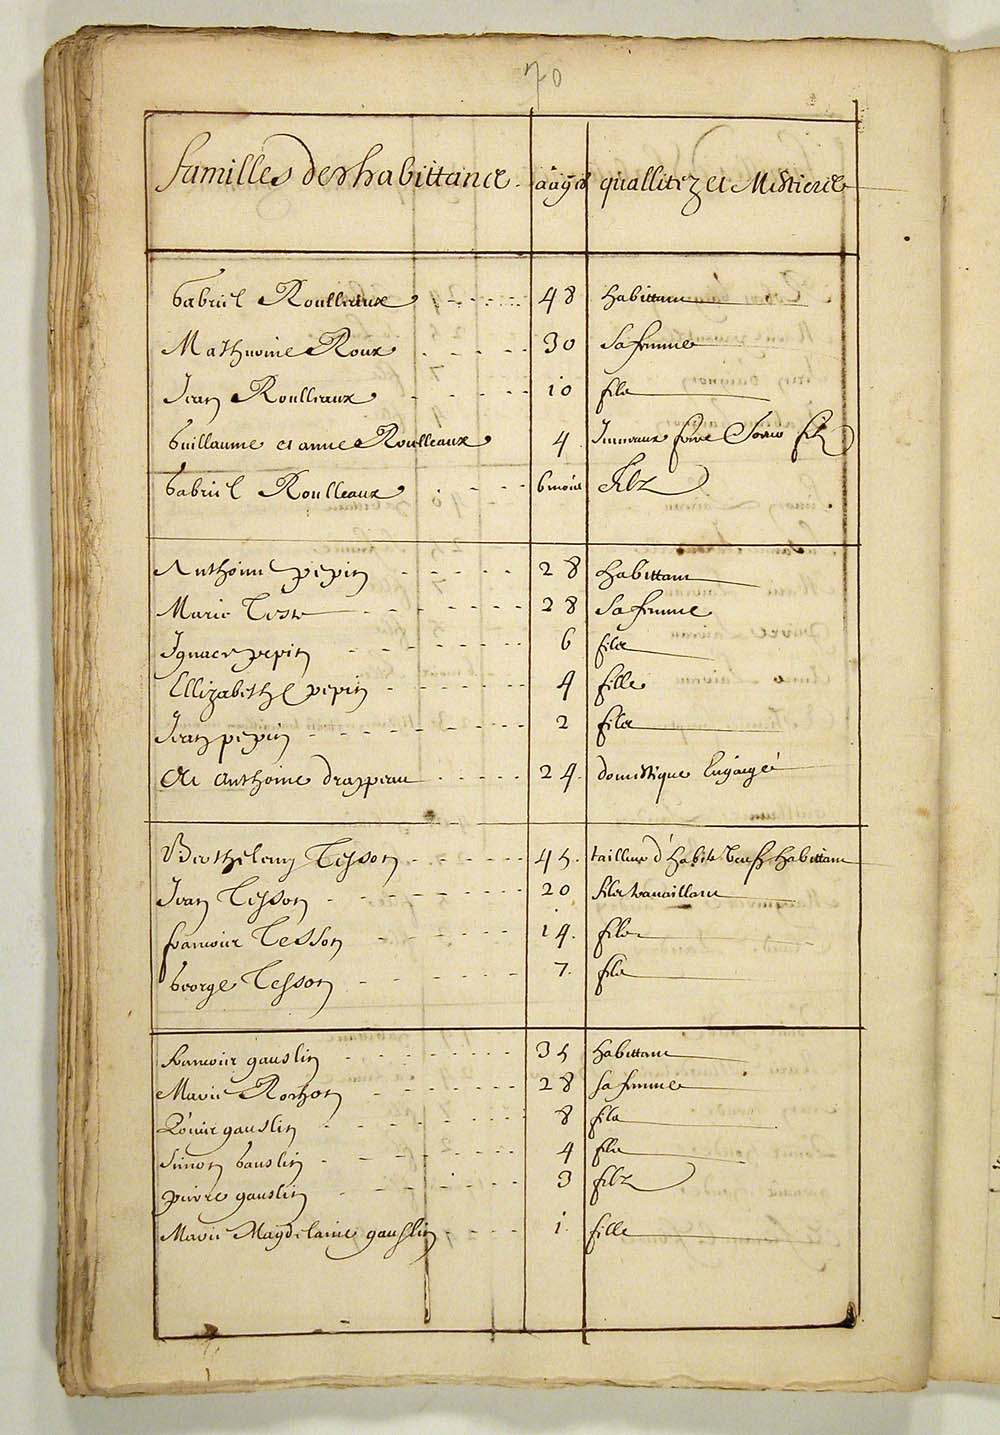 70
familles des habittans aagés quallitez et Mestiers
Gabriel Roulleaux 48 habittant
Mathurine Roux 30 sa femme
Jean Roulleaux 10 fils
Guillaume et anne Roulleaux 4 Jumeaux frere soeur
Gabriel Roulleaux 6 mois filz
Anthoine pepin 28 habittant
Marie Teste 28 sa femme
Ignace pepin 6 fils
Ellizabeth pepin 4 fille
Jean pepin 2 fils
Anthoine drappeau 24 domestique Engagé
Berthelemy Tesson 45 tailleur d'habits veuf habittant
Jean Tesson 20 fils travaillant
francois Tesson 14 fils
George Tesson 7 fils
francois gauslin 35 habittant
Marie Rochon 28 sa femme
Louis gauslin 8 fils
Simon Gauslin 4 fils
pierre gauslin 3 filz
Marie Magdelaine gauslin 1 fille